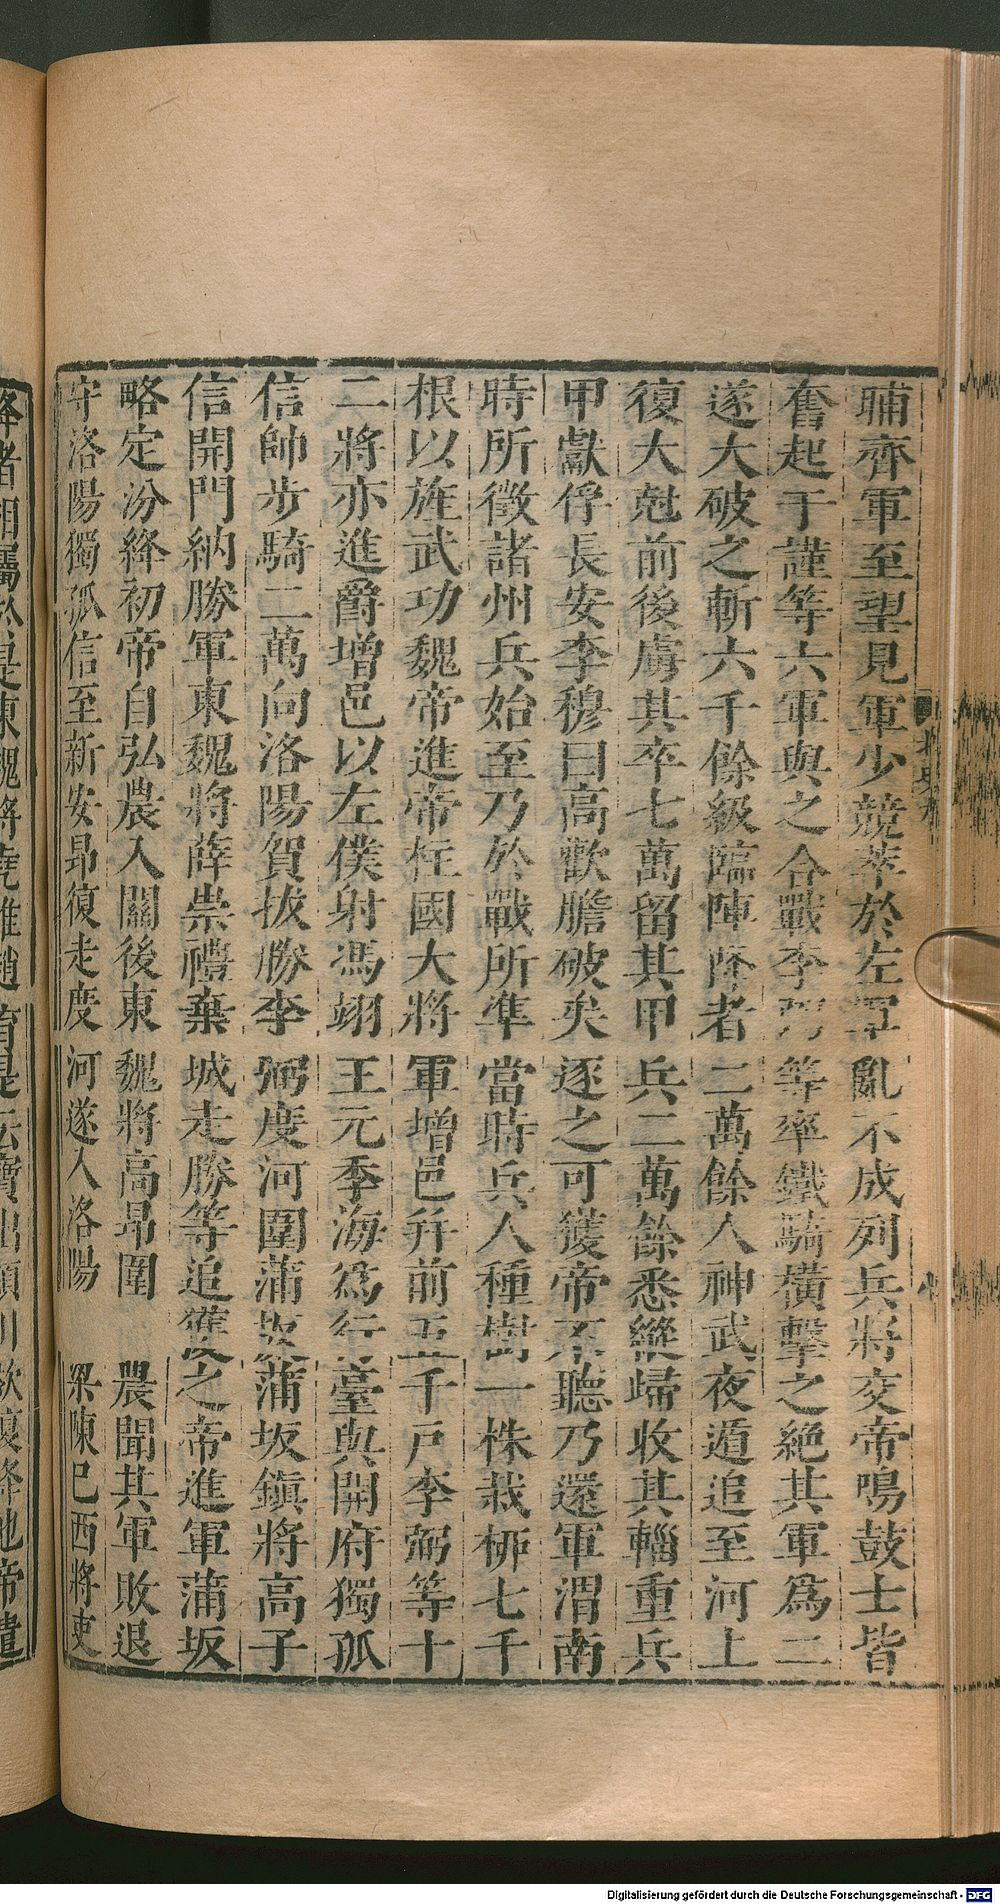 晡齊軍至望見軍少競萃於左軍亂不成列兵將交帝鳴鼓士皆
奮起于謹等六軍與之合戰李弼等率鐵騎橫擊之絕其軍爲二
遂大破之斬六千餘級臨陣降者二萬餘人神武夜遁追至河上
復大剋前後虜其卒七萬留其甲兵二萬餘悉縱歸收其輜重兵
甲獻俘長安李穆曰高歡膽破矣逐之可獲帝不聽乃還軍渭南
時所徵諸州兵始至乃於戰所準當時兵人種樹一株栽柳七千
根以旌武功魏帝進帝柱國大將軍增邑幷前五千戸李弼等十
二將亦進爵增邑以左僕射馮翊王元季海爲行臺與開府獨孤
信帥步騎二萬向洛陽賀拔勝李弼度河圍蒲坂蒲坂鎭將高子
信開門納勝軍東魏將薛崇禮棄城走勝等追獲之帝進軍蒲坂
略定汾絳初帝自弘農入關後東魏將高昂圍農聞其軍敗退
守洛陽獨孤信至新安昂復走度河遂入洛陽梁陳巳西將吏
降者相屬於是東魏將堯雄趙育是云寶出潁川欲復降地帝遣
北史九
Digitalisierung gefördert durch die Deutsche Forschungsgemeinschaft - DFG